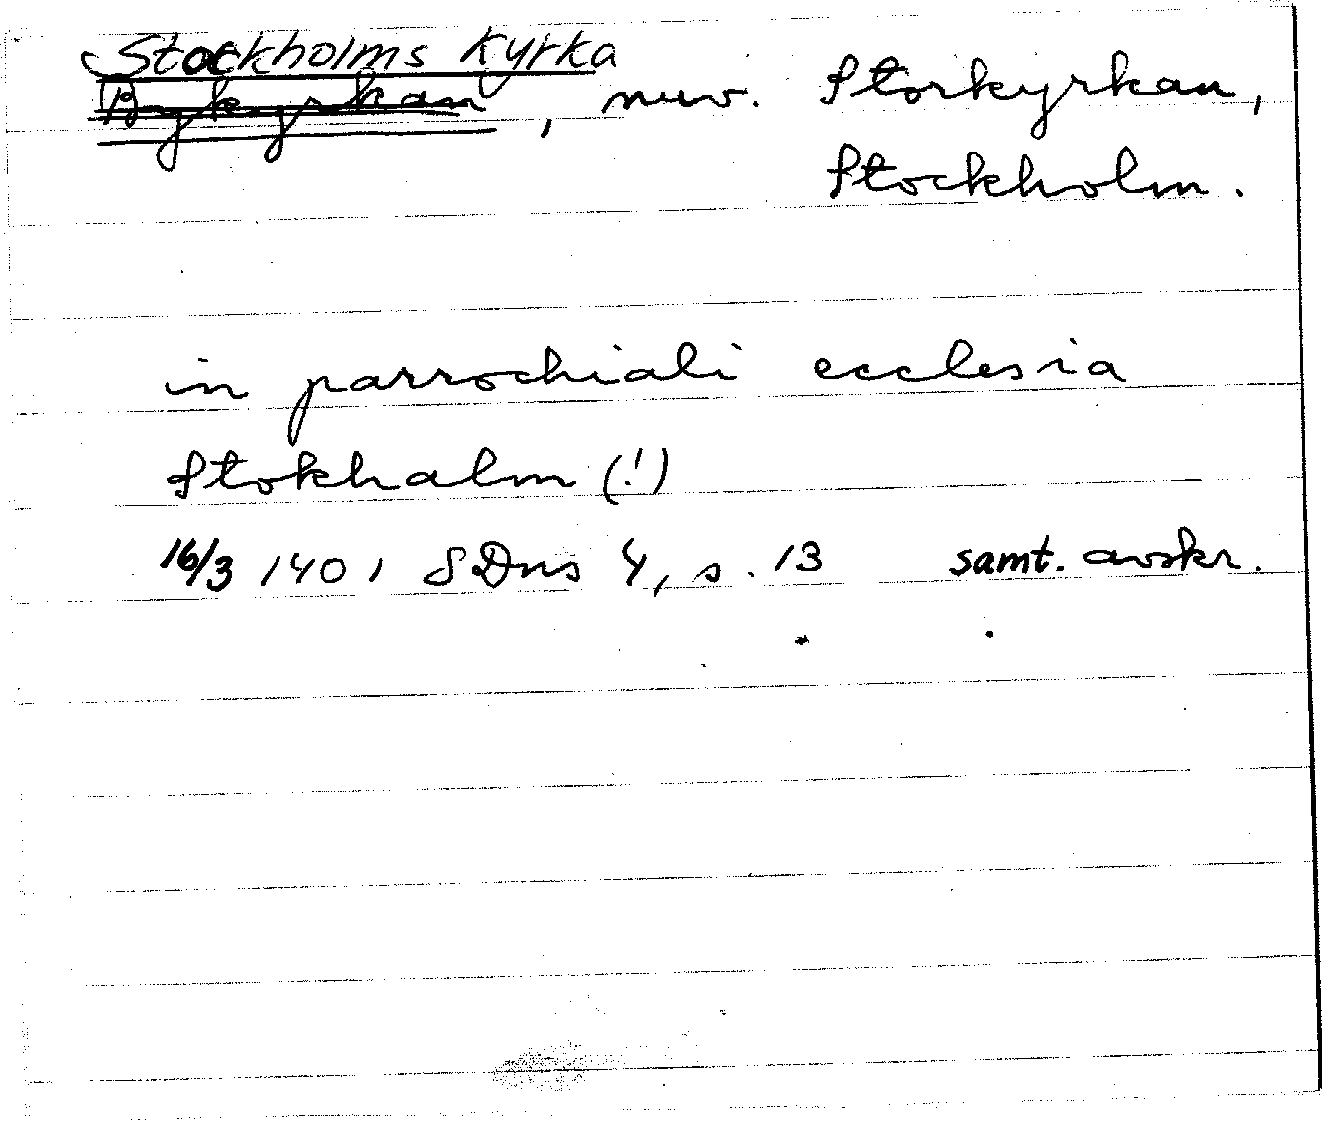 Stockholms kyrka
Bykyrkan, nuv. Storkyrkan,
Stockholm.
in parrochiali ecclesia
Stokhalm (!)
16/3 1401 SDns 4, s. 13 samt. avskr.